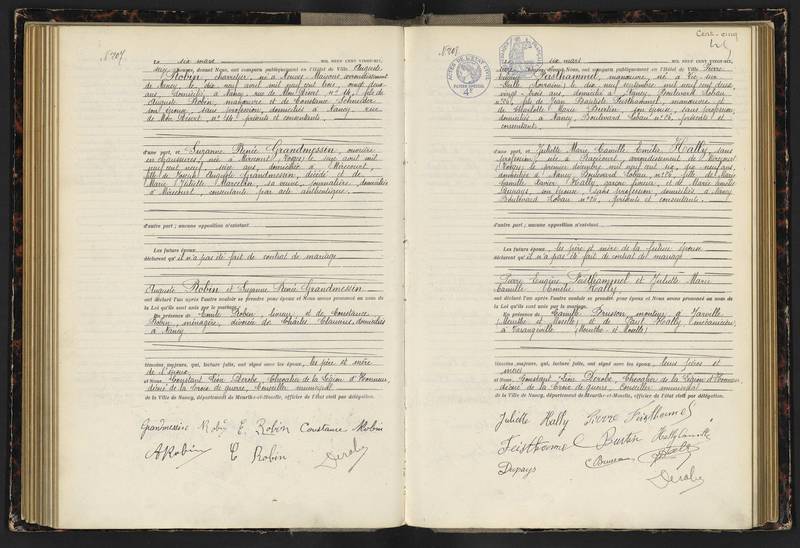 N° 207.
Le six mars MIL NEUF CENT VINGT-SIX,
onze heures, devant Nous, ont comparu publiquement en l'Hôtel de Ville Auguste
Robin, charretier, né à arrondissement
de Nancy, le dix neuf avril mil neuf cent trois, vingt deux
ans, domicilié à Nancy, rue de Mon Désert n° 14, fils de
Auguste Robin, maçon et de Constance Schneider
son épouse, sans profession, domiciliés à Nancy rue
de Mon Désert, n° 14 présents et consentants.
d'une part, et Suzanne Renée Grandmessin, ouvrière
en chaussures, née à Mirecourt Vosges le onze avril mil
neuf cent neuf, seize ans, domiciliée à Mirecourt,
fille de Joseph Auguste Grandmessin, décédé et de
Marie Juliette Marcelin, sa veuve, journalière, domiciliée
à Mirecourt, consentante par acte authentique.
d'autre part; aucune opposition n'existant
Les futurs époux
déclarent qu'il n'a pas été fait de contrat de mariage
Auguste Robin et Suzanne Renée Grandmessin
ont déclaré l'un après l'autre vouloir se prendre pour époux et Nous avons prononcé au nom de
la Loi qu'ils sont unis par le mariage.
En présence de Emile Robin, livreur, et de Constance
Robin, ménagère, divorcée de Charles domiciliés
à Nancy
témoins majeurs, qui, lecture faite, ont signé avec les époux, les père et mère
de l'époux
et Nous, Constant Léon Derobe, Chevalier de la Légion d'Honneur
décoré de la Croix de guerre, Conseiller municipal
de la Ville de Nancy, département de Meurthe-et-Moselle, officier de l'état civil par délégation.
Grandmessin Robin E. Robin Constance Robin
A Robin E Robin Derobe
Cent-cinq
N° 208.
Le six mars MIL NEUF CENT VINGT-SIX,
heures, devant Nous, ont comparu publiquement en l'Hôtel de Ville Pierre
Eugène Feisthammel, manœuvre, né à Vic sur
Seille (Lorraine) le dix neuf septembre mil neuf cent deux
vingt-trois ans, domicilié à Nancy Boulevard Lobau
n° 26, fils de Jean Baptiste Feisthammel, manœuvre et
de Marie Bertin, son épouse, sans profession,
domiciliés à Nancy Boulevard Lobau n° 26, présents et
consentants
d'une part, et Juliette Marie Camille Emilie Hally, sans
profession, née à Racécourt, arrondissement de Mirecourt
(Vosges) le premier décembre mil neuf cent six, dix neuf ans,
domiciliée à Nancy Boulevard Lobau n° 26, fille de Marie
Camille Xavier Hally, garçon livreur, et de Marie Amélie
son épouse, sans profession, domiciliés à Nancy
Boulevard Lobau n° 26, présents et consentants.
d'autre part; aucune opposition n'existant
Les futurs époux, les père et mère de la future épouse
déclarent qu'il n'a pas été fait de contrat de mariage
Pierre Eugène Feisthammel et Juliette Marie
Camille Emilie Hally
ont déclaré l'un après l'autre vouloir se prendre pour époux et Nous avons prononcé au nom de
la Loi qu'ils sont unis par le mariage.
En présence de Camille monteur à Jarville
(Meurthe et Moselle) et de Paul Hally mécanicien
à Varangéville (Meurthe-et-Moselle)
témoins majeurs, qui, lecture faite, ont signé avec les époux, leurs pères et
mères
et Nous, Constant Léon Derobe, Chevalier de la Légion d'Honneur
décoré de la Croix de Guerre, Conseiller municipal
de la Ville de Nancy, département de Meurthe-et-Moselle, officier de l'état civil par délégation.
Juliette Hally Pierre Feisthammel
Feisthammel Bertin Hally Camille
Dupays Hally
Derobe